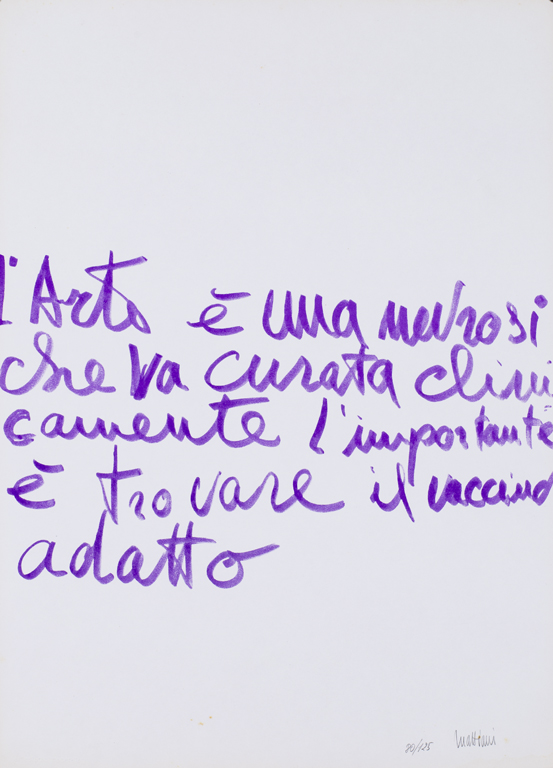 l'Arte è una nevrosi
che va curata clini
camente l'importante
è trovare il vaccino
adatto
80/125